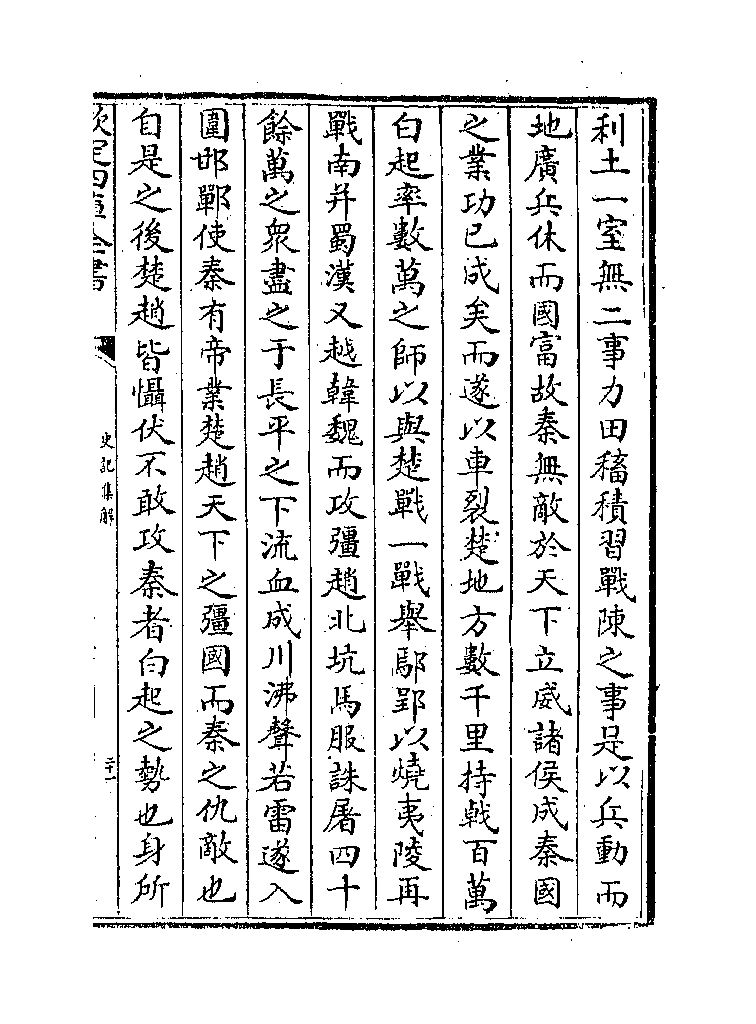 利土一室無二事力田稸積習戰陳之事是以兵動而
地廣兵休而國富故秦無敵於天下立威諸侯成秦國
之業功已成矣而遂以車裂楚地方數千里持戟百萬
白起率數萬之師以與楚戰一戰舉鄢郢以燒夷陵再
戰南并蜀漢又越韓魏而攻彊趙北坑馬服誅屠四十
餘萬之衆盡之于長平之下流血成川沸聲若雷遂入
圍邯鄲使秦有帝業楚趙天下之彊國而秦之仇敵也
自是之後楚趙皆懾伏不敢攻秦者白起之勢也身所
欽定四庫全書
史記集解
二十一